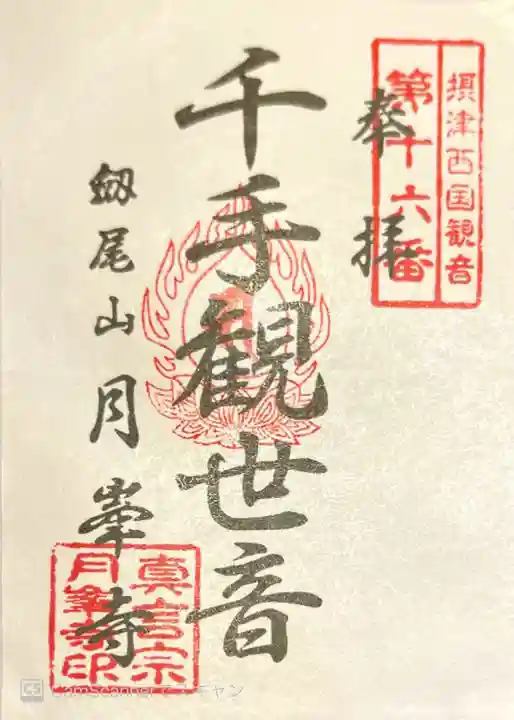 摂津西国観音
第十六番
奉拝
千手観世音
剱尾山月峯寺
真言宗
月峯寺印
CS CamScannerでスキャン